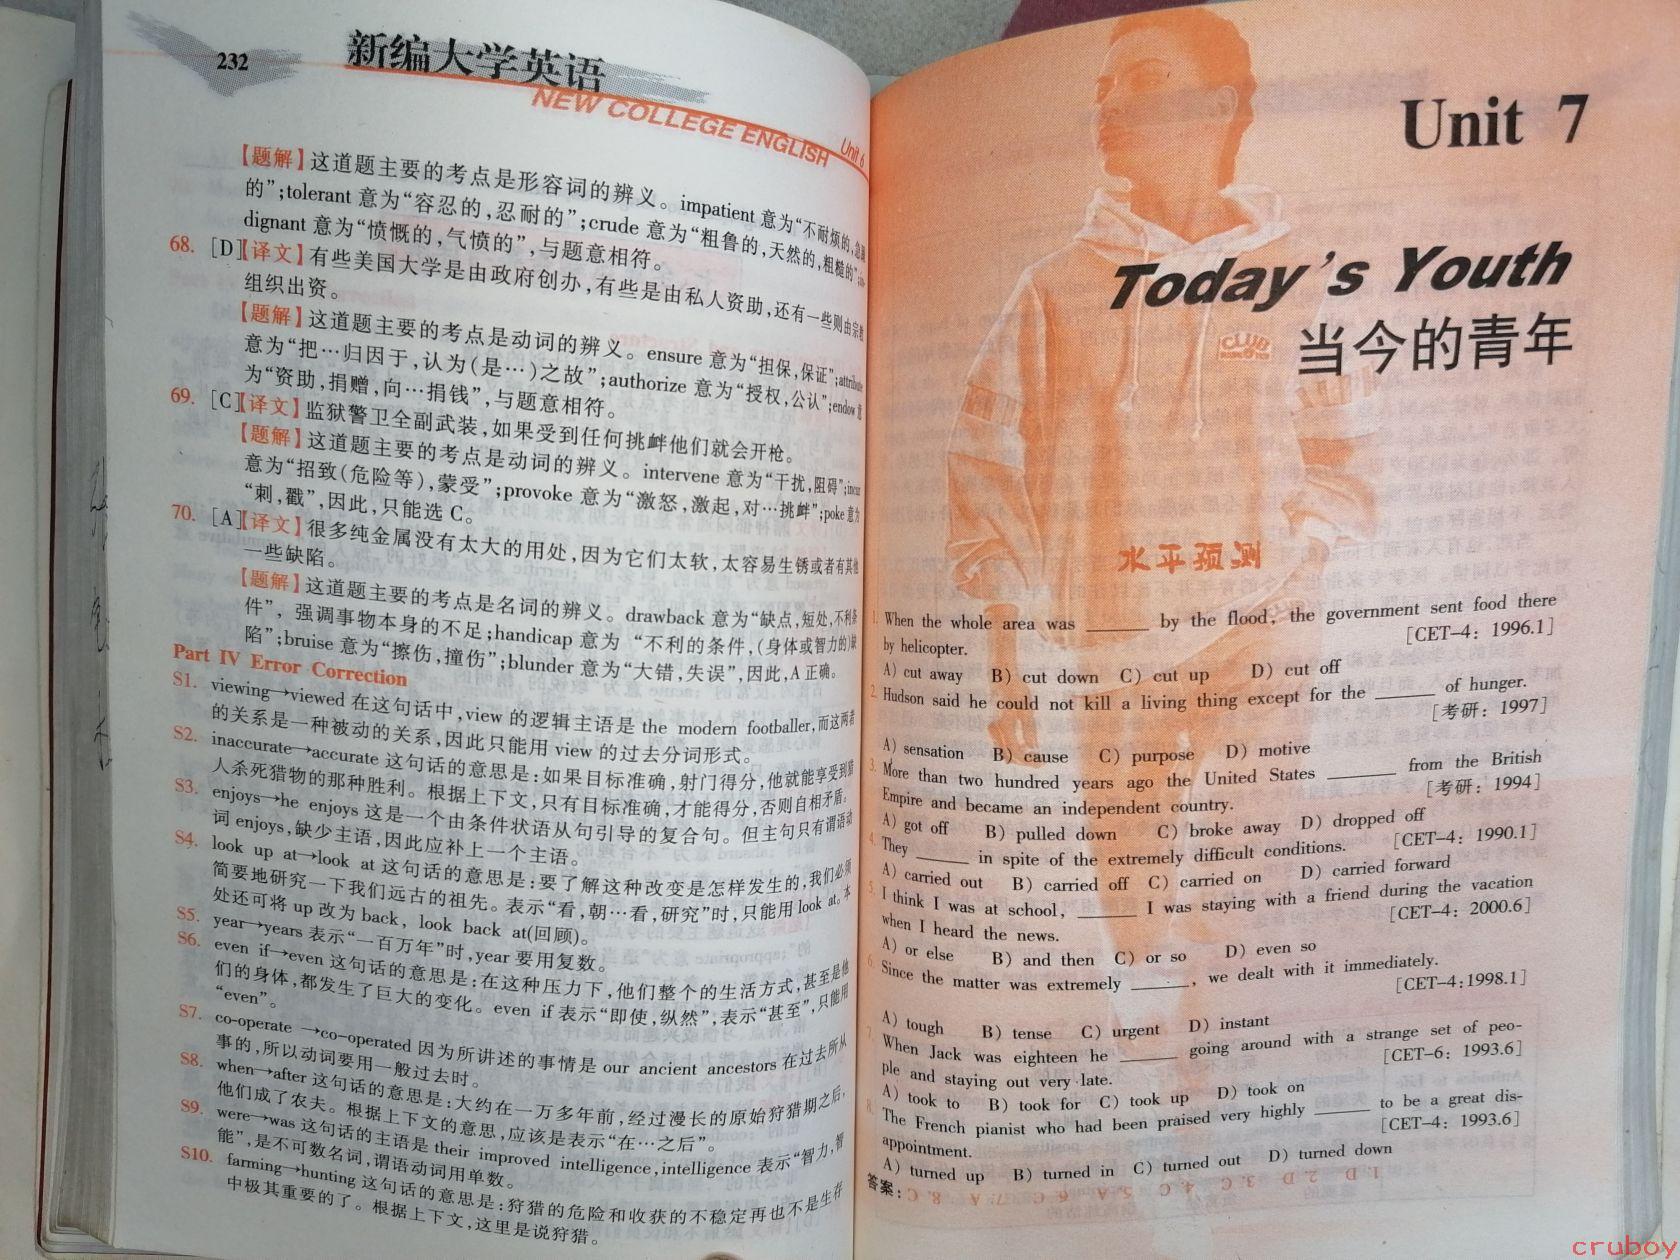 232
新编大学英语
NEW COLLEGE ENGLISH
Unit 6
【题解】这道题主要的考点是形容词的辨义。impatient 意为“不耐烦的,急躁
的”;tolerant 意为“容忍的,忍耐的”;crude 意为“粗鲁的,天然的,粗糙的”;in-
dignant 意为“愤慨的,气愤的”,与题意相符。
68. [D]【译文】有些美国大学是由政府创办,有些是由私人资助,还有一些则由宗教
组织出资。
【题解】这道题主要的考点是动词的辨义。ensure 意为“担保,保证”;attribute
意为“把…归因于,认为(是…)之故”;authorize 意为“授权,公认”;endow 意
为“资助,捐赠,向…捐钱”,与题意相符。
69. [C]【译文】监狱警卫全副武装,如果受到任何挑衅他们就会开枪。
【题解】这道题主要的考点是动词的辨义。intervene 意为“干扰,阻碍”;incur
意为“招致(危险等),蒙受”;provoke 意为“激怒,激起,对…挑衅”;poke 意为
“刺,戳”,因此,只能选 C。
70. [A]【译文】很多纯金属没有太大的用处,因为它们太软,太容易生锈或者有其他
一些缺陷。
【题解】这道题主要的考点是名词的辨义。drawback 意为“缺点,短处,不利条
件”,强调事物本身的不足;handicap 意为 “不利的条件,(身体或智力的)缺
陷”;bruise 意为“擦伤,撞伤”;blunder 意为“大错,失误”,因此,A 正确。
Part IV Error Correction
S1. viewing→viewed 在这句话中,view 的逻辑主语是 the modern footballer,而这两者
的关系是一种被动的关系,因此只能用 view 的过去分词形式。
S2. inaccurate→accurate 这句话的意思是:如果目标准确,射门得分,他就能享受到猎
人杀死猎物的那种胜利。根据上下文,只有目标准确,才能得分,否则自相矛盾。
S3. enjoys→he enjoys 这是一个由条件状语从句引导的复合句。但主句只有谓语动
词 enjoys,缺少主语,因此应补上一个主语。
S4. look up at→look at 这句话的意思是:要了解这种改变是怎样发生的,我们必须
简要地研究一下我们远古的祖先。表示“看,朝…看,研究”时,只能用 look at。本
处还可将 up 改为 back, look back at(回顾)。
S5. year→years 表示“一百万年”时,year 要用复数。
S6. even if→even 这句话的意思是:在这种压力下,他们整个的生活方式,甚至是他
们的身体,都发生了巨大的变化。even if 表示“即使,纵然”,表示“甚至”,只能用
“even”。
S7. co-operate →co-operated 因为所讲述的事情是 our ancient ancestors 在过去所从
事的,所以动词要用一般过去时。
S8. when→after 这句话的意思是:大约在一万多年前,经过漫长的原始狩猎期之后,
他们成了农夫。根据上下文的意思,应该是表示“在…之后”。
S9. were→was 这句话的主语是 their improved intelligence,intelligence 表示“智力,智
能”,是不可数名词,谓语动词用单数。
S10. farming→hunting 这句话的意思是:狩猎的危险和收获的不稳定再也不是生存
中极其重要的了。根据上下文,这里是说狩猎。
Unit 7
Today's Youth
当今的青年
CLUB
水平预测
1. When the whole area was ______ by the flood, the government sent food there
by helicopter. [CET-4: 1996.1]
A) cut away B) cut down C) cut up D) cut off
2. Hudson said he could not kill a living thing except for the ______ of hunger.
[考研: 1997]
A) sensation B) cause C) purpose D) motive
3. More than two hundred years ago the United States ______ from the British
Empire and became an independent country. [考研: 1994]
A) got off B) pulled down C) broke away D) dropped off
4. They ______ in spite of the extremely difficult conditions. [CET-4: 1990.1]
A) carried out B) carried off C) carried on D) carried forward
5. I think I was at school, ______ I was staying with a friend during the vacation
when I heard the news. [CET-4: 2000.6]
A) or else B) and then C) or so D) even so
6. Since the matter was extremely ______, we dealt with it immediately.
[CET-4:1998.1]
A) tough B) tense C) urgent D) instant
7. When Jack was eighteen he ______ going around with a strange set of peo-
ple and staying out very late. [CET-6: 1993.6]
A) took to B) took for C) took up D) took on
8. The French pianist who had been praised very highly ______ to be a great dis-
appointment. [CET-4: 1993.6]
A) turned up B) turned in C) turned out D) turned down
答案: 1. D 2. D 3. C 4. C 5. A 6. C 7. A 8. C
cruboy